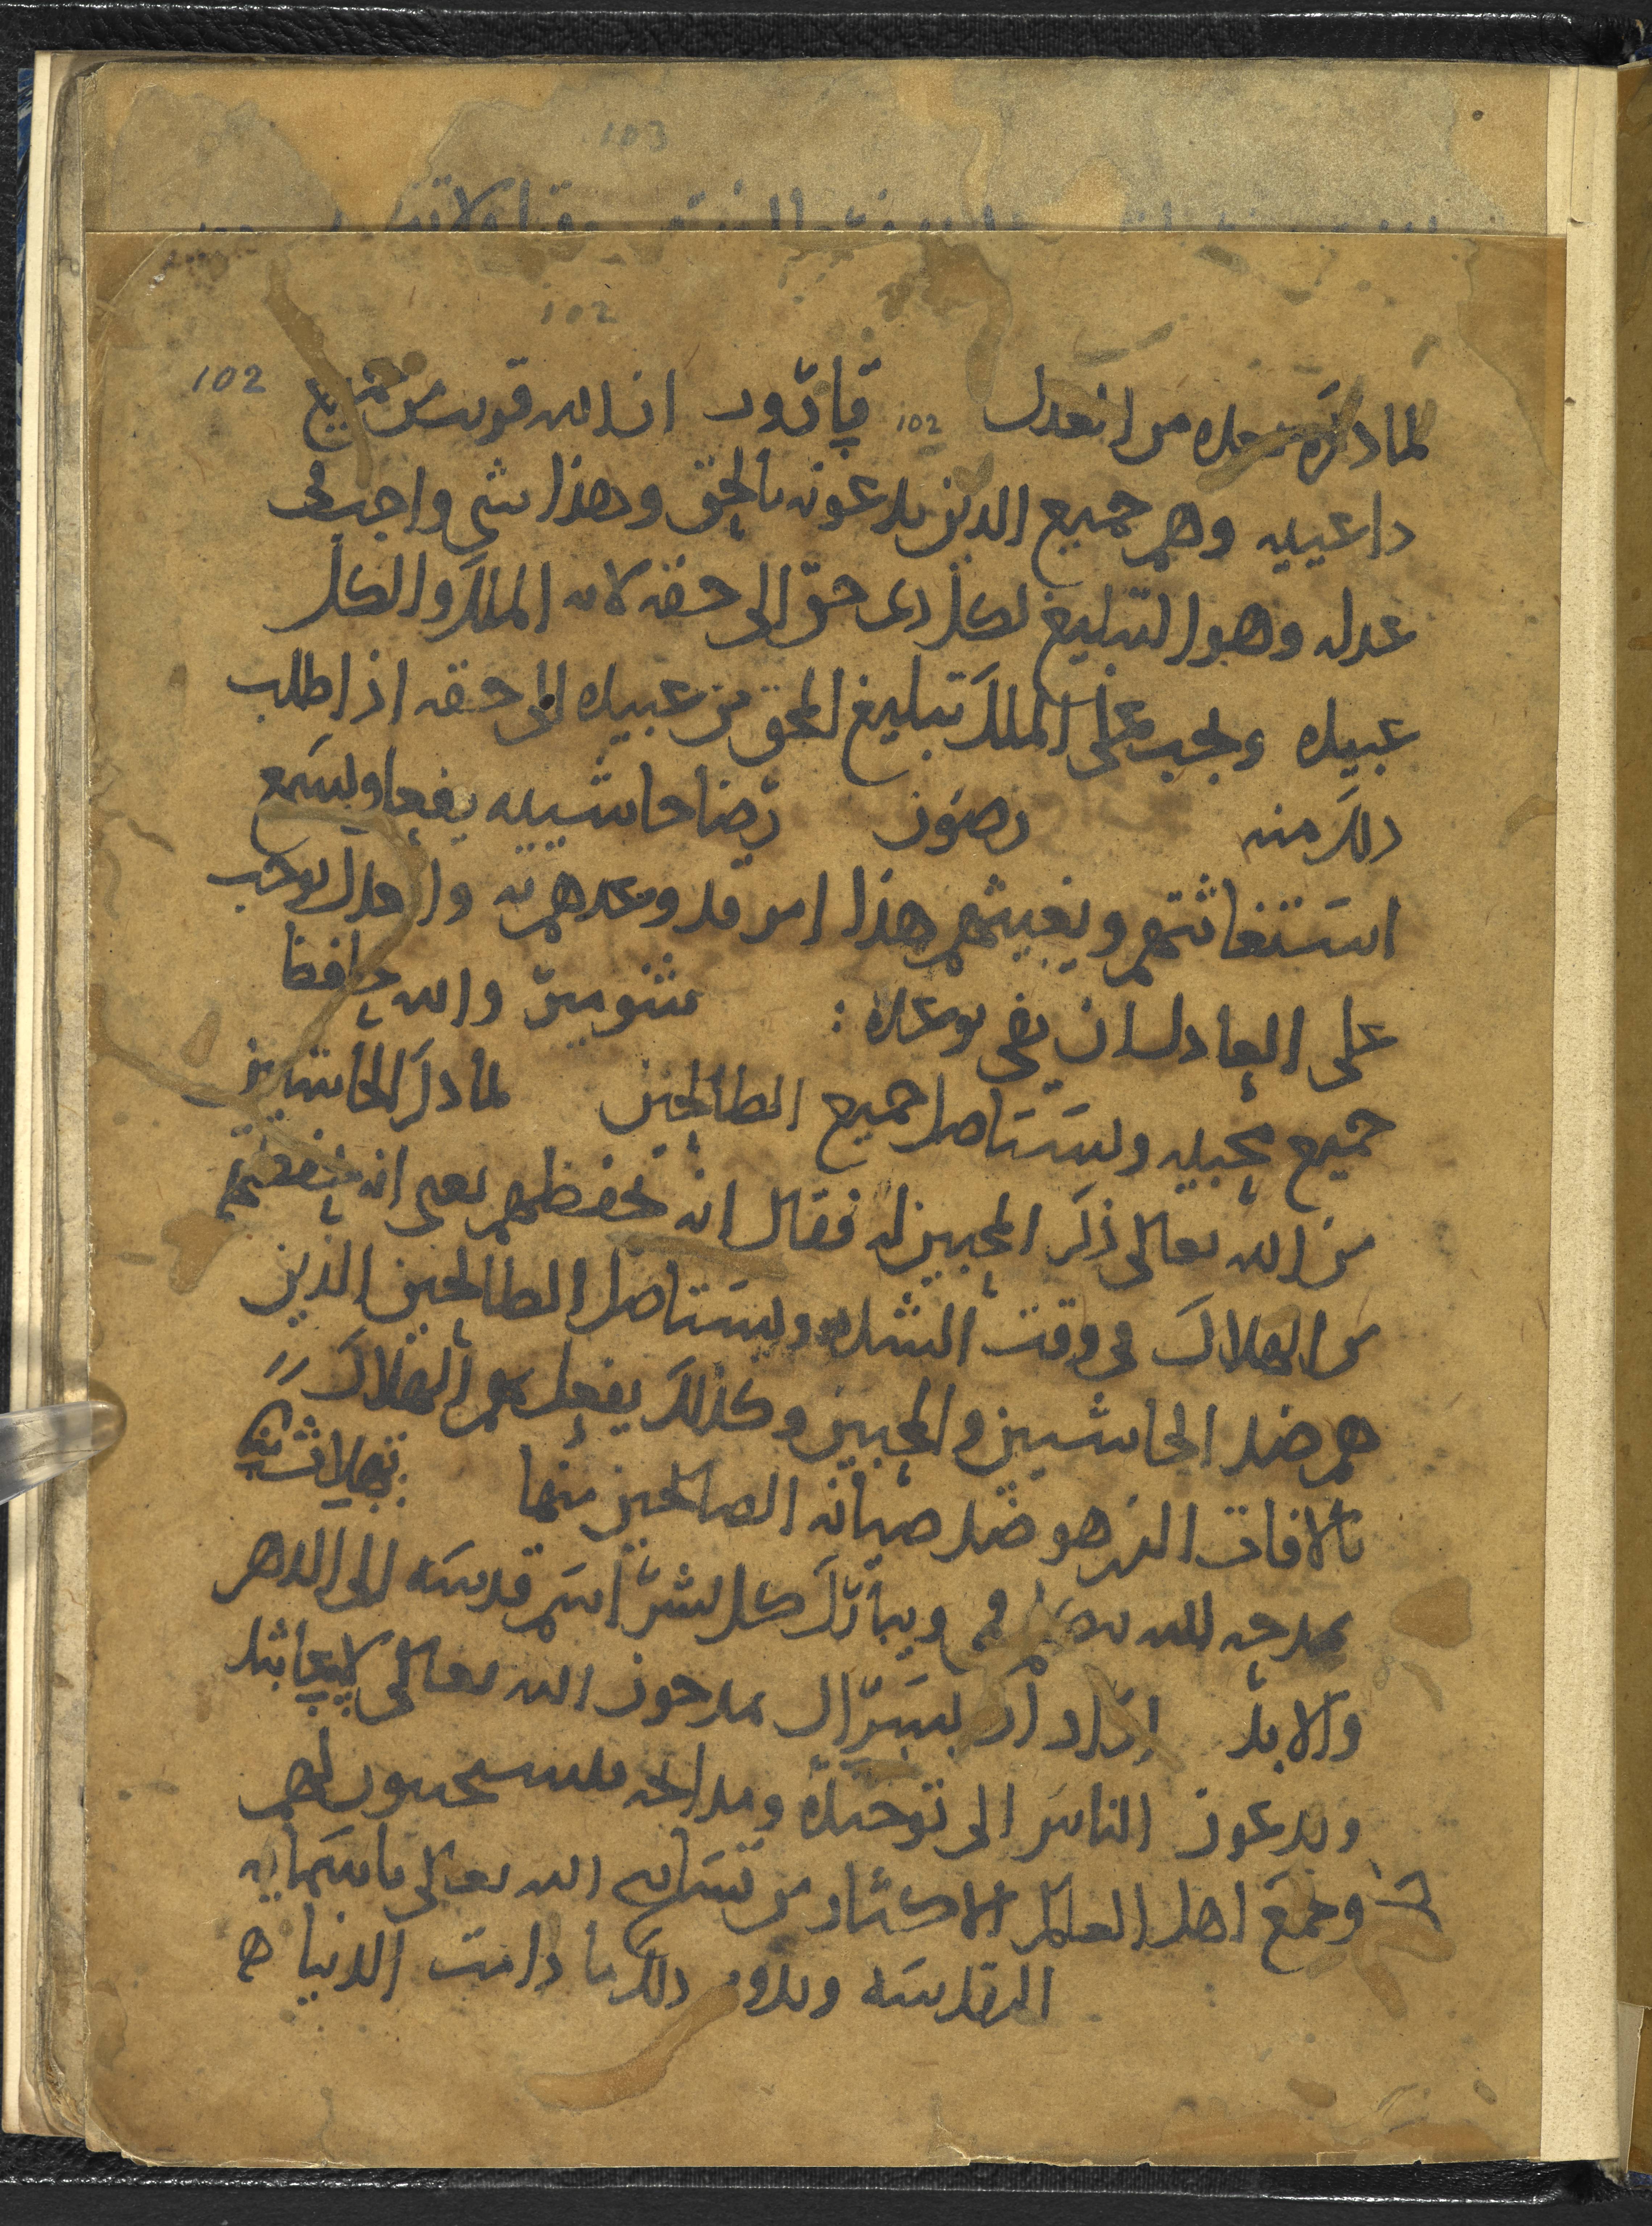 103
102
لما ذكره بعده من العدل 102 قاروب ان الله قريب من جميع 102
داعييه وهم جميع الذين يدعونه بالحق وهذا شي واجب في
عدله وهو التبليغ لكل ذى حق الى حقه لانه الملك والكل
عبيده ويجب على الملك تبليغ المحق من عبيده الى حقه اذا طلب
ذلك منه رصون رضا خاشييه يفعل ويسمع
استغاثتهم ويغيثهم هذا امر قد وعدهم به والعدل يوجب
على العادل ان يفى بوعده : شومير والله حافظ
جميع محبيه ويستاصل جميع الطالحين لما ذكر الخاشيين
من الله تعالى ذكر المحبين له فقال انه يحفظهم يعنى انه يحفظهم
من الهلاك فى وقت الشده ويستاصل الطالحين الذين
هم ضد الخاشيين والمحبين وكذلك يفعل بهم الهلاك
بالافات الذى هو ضد صيانه الصالحين منها تهلاث
مدحه لله في ويبارك كل بشر اسم قدسه الى الدهر
والابد اراد ان يسرال يمدحون الله تعالى
ويدعون الناس الى توحيده ومدائحه لهم
وجمع اهل العالم الاكثار من الله تعالى باسمائه
المقدسه ويدوم ذلك ما دامت الدنيا ه